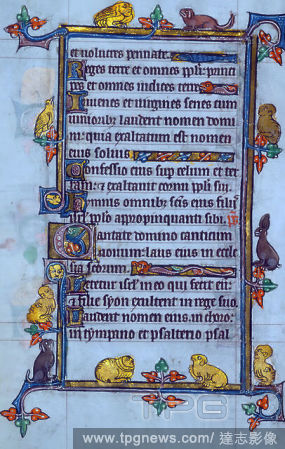 et volucres pennate.
Reges terre et omnes ppli: princi
pes et omnes iudices terre
Iuuenes et uirgines senes cum
iunioribus laudent nomen domi
ni: quia exaltatum est nomen
eius solius
Confessio eius sup celum et ter
ram: et exaltauit cornu ppli sui.
Ymnis omnibus scis eius filiis
isrl pplo apropinquanti sibi.
Cantate domino canticum
nouum: laus eius in eccle
sia scorum.
Letetur isrl in eo qui fecit eum
et filie syon exultent in rege suo.
Laudent nomen eius in choro:
in tympano et psalterio psal
TPG
www.tpgnews.com/ 達志影像